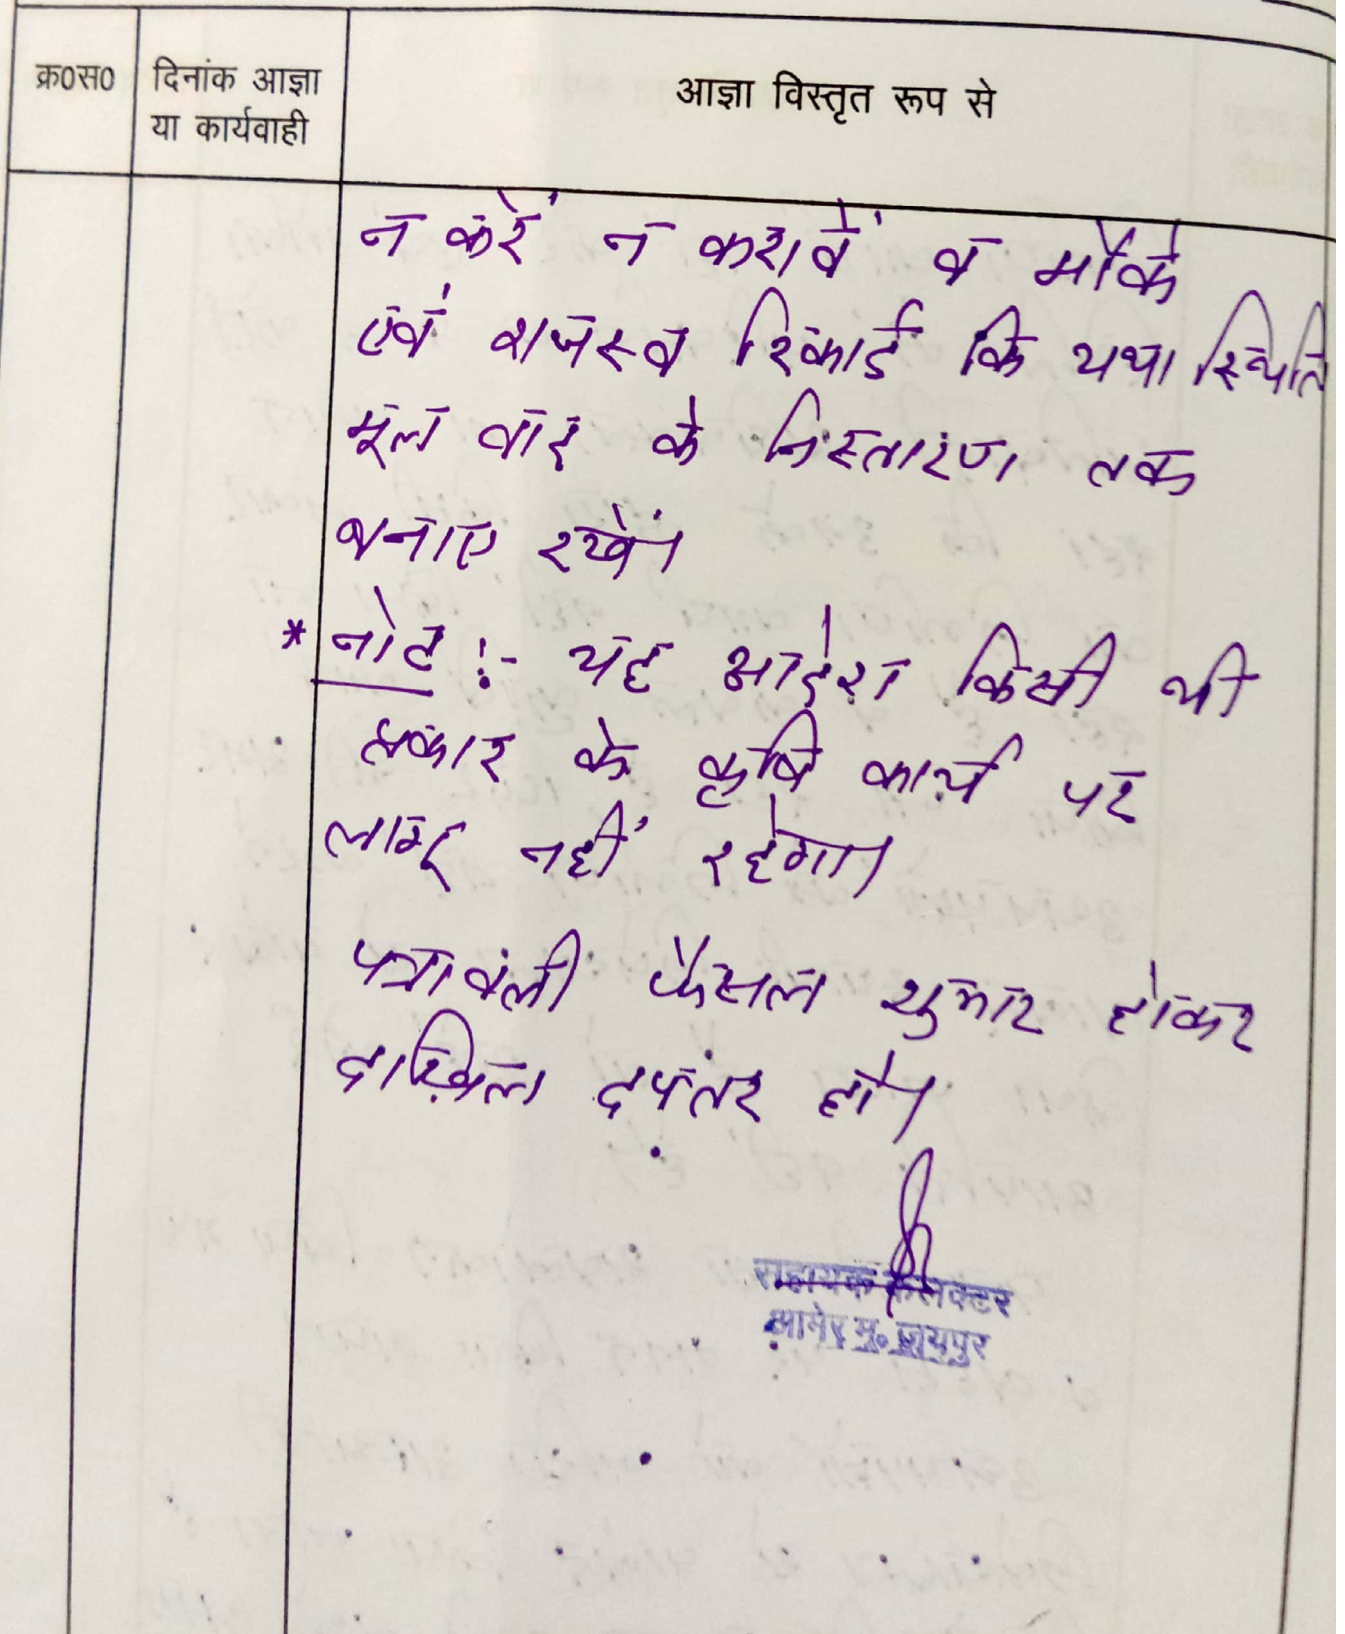 क्र0स0
दिनांक आज्ञा
या कार्यवाही
आज्ञा विस्तृत रूप से
न करें न करावें व मौके
एवं राजस्व रिकार्ड कि यथा स्थिति
मूल वाद के निस्तारण तक
बनाए रखें।
* नोट :- यह आदेश किसी भी
प्रकार के कृषि कार्य पर
लागू नहीं रहेगा।
पत्रावली फैसल शुमार होकर
दाखिल दफ्तर हो।
सहायक कलक्टर
आमेर मु. जयपुर